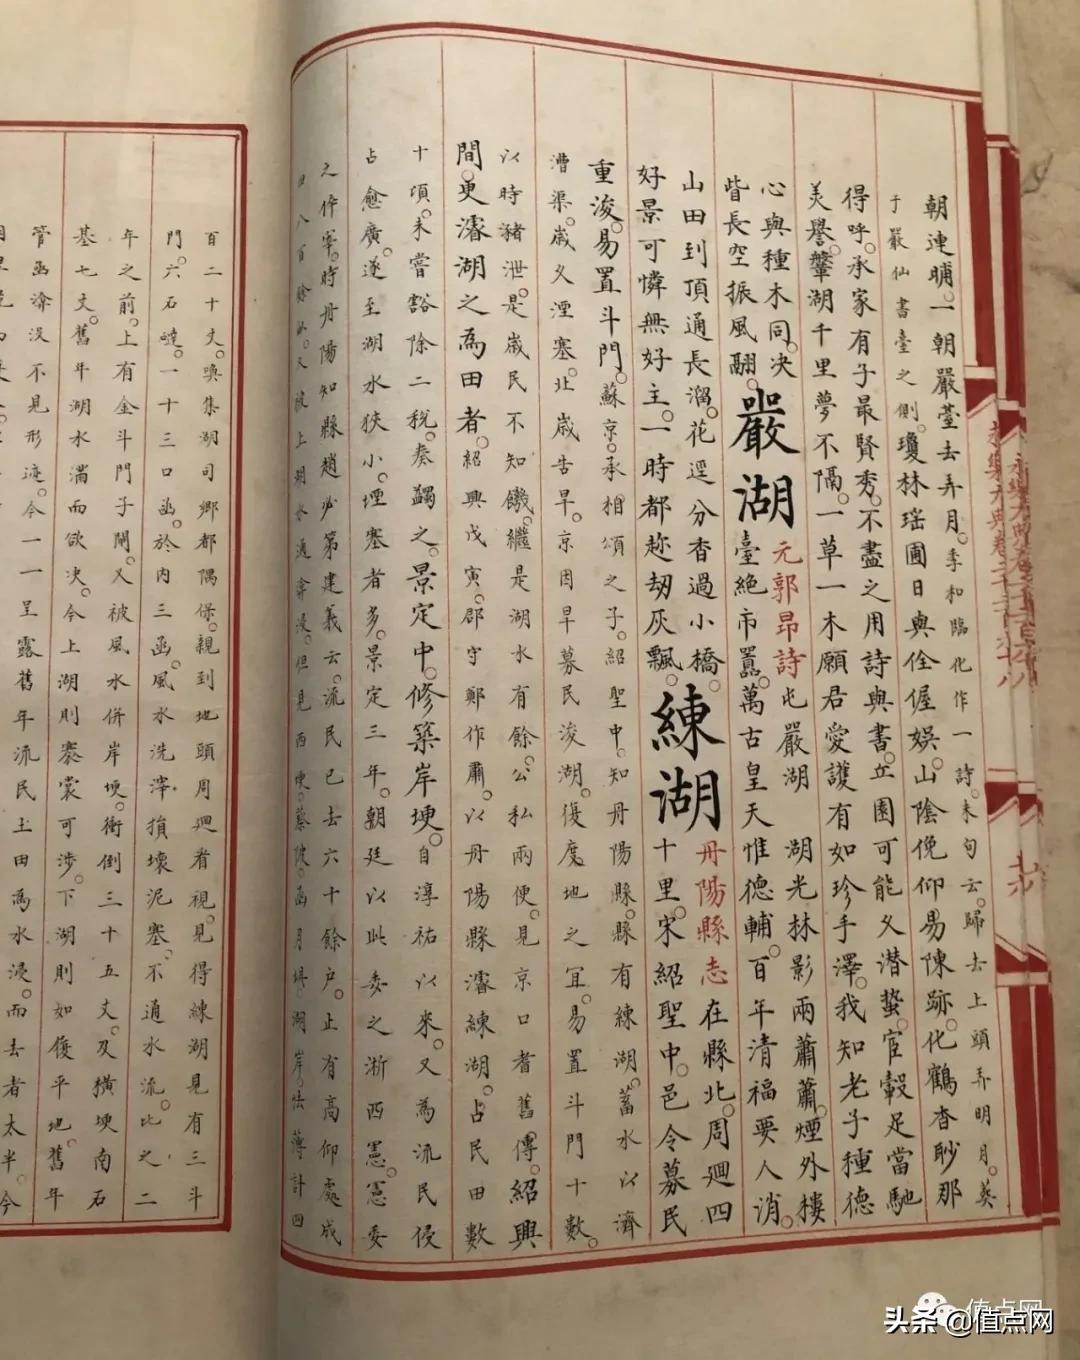 永樂大典卷二千二百六十八
朝連晡。一朝嚴臺去弄月。李和臨化作一詩。末句云。歸去上頭弄明月。葵
于嚴仙書臺之側。瓊林瑤圃日與佺偓娛。山陰俛仰易陳跡。化鶴杳眇那
得呼。承家有子最賢秀。不盡之用詩與書。丘園可能久潛蟄。宦轂足當馳
美譽。鑿湖千里夢不隔。一草一木願君愛護有如珍手澤。我知老子種德
心與種木同。决
眥長空振風翮。
嚴湖
元郭昂詩
屯嚴湖 湖光林影兩蕭蕭。煙外樓
臺絕市囂。萬古皇天惟德輔。百年清福要人消。
山田到頂通長溜。花逕分香過小橋。
好景可憐無好主。一時都趂刧灰飄。
練湖
丹陽縣志
在縣北。周迴四
十里。宋紹聖中。邑令募民
重浚。易置斗門。
蘇京。承相頌之子。紹聖中。知丹陽縣。縣有練湖。蓄水以濟
漕渠。歲久湮塞。北歲告旱。京因旱募民浚湖。復度地之宜。易置斗門十數。
以時豬泄。是歲民不知饑。繼是湖水有餘。公私兩便。見京口耆舊傳。紹興
間。更濬湖之為田者。紹興戊寅。郡守鄭作肅。以丹陽縣濬練湖。占民田數
十頃。未嘗豁除二稅。奏蠲之。景定中。修築岸埂。自淳祐以來。又為流民侵
占愈廣。遂至湖水狹小。堙塞者多。景定三年。朝廷以此委之浙西憲。憲委
之倅宰。時丹陽知縣趙必第建義云。流民已去六十餘戶。止有高仰處成
田八百餘畝。又被上湖水通奔浸。但見西東。蔡陂。函月堤。湖岸。怯薄計四
百二十丈。喚集湖司鄉都隅保。親到地頭周迴看視。見得練湖見有三斗
門。六石噠。一十三口函。於內三函。風水洗滓損壞泥塞。不通水流。比之二
年之前。上有金斗門子閘。又被風水併岸埂。衝倒三十五丈。及橫埂南石
基七丈。舊年湖水滿而欲决。今上湖則褰裳可涉。下湖則如復平地。舊年
管函渰没不見形迹。今一一呈露舊年流民土田為水浸。而去者太半。今
值点网
头条 @值点网